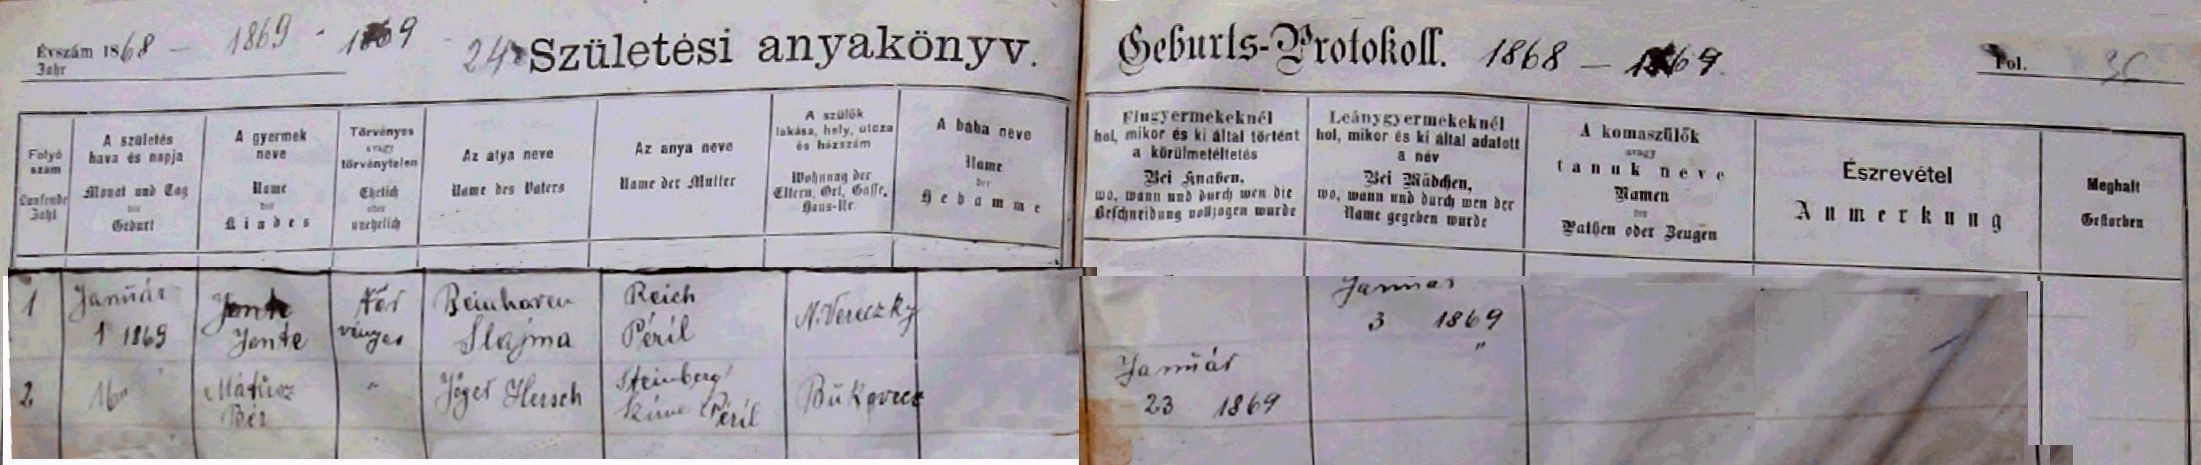 Évszám 1868 — 1869 - 1869
Jahr
24 Születési anyakönyv.
Geburts-Protokoll. 1868 — 1869.
Fol. 36
Folyó
szám
Laufende
Zahl
A születés
hava és napja
Monat und Tag
der
Geburt
A gyermek
neve
Name
des
Kindes
Törvényes
avagy
törvénytelen
Ehelich
oder
unehelich
Az atya neve
Name des Vaters
Az anya neve
Name der Mutter
A szülők
lakása, hely, utcza
és házszám
Wohnung der
Eltern, Ort, Gasse,
Haus-Nr.
A bába neve
Name
der
Hebamme
Fiugyermekeknél
hol, mikor és ki által történt
a körülmetéltetés
Bei Knaben,
wo, wann und durch wen die
Beschneidung vollzogen wurde
Leánygyermekeknél
hol, mikor és ki által adatott
a név
Bei Mädchen,
wo, wann und durch wen der
Name gegeben wurde
A komaszülők
avagy
tanuk neve
Namen
der
Pathen oder Zeugen
Észrevétel
Anmerkung
Meghalt
Gestorben
1
Január
1 1869
Jente
Jente
Tör
vényes
Beinhoren
Slajma
Reich
Péril
N. Vereczky
Január
3 1869
"
2
16
Mátisz
Bér
"
Jäger Hersch
Steinberg
Péril
Bukovecz
Január
23 1869